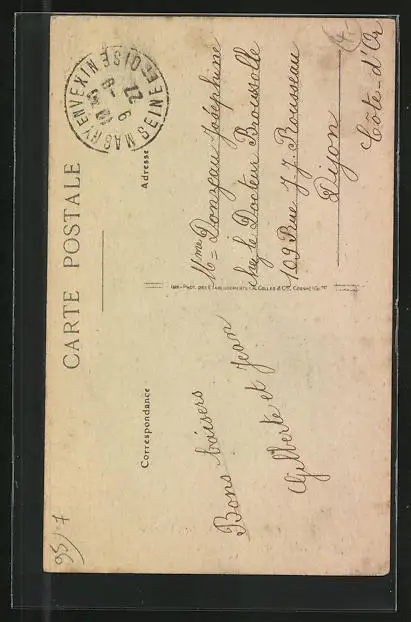 CARTE POSTALE
MAGNY EN VEXIN SEINE ET OISE
6
22
Correspondance
Adresse
Bons baisers
Gilberte et Jean
Mme Donzeau Joséphine
chez le Docteur Broussolle
109 Rue J. J. Rousseau
Dijon
Côte-d'Or
IMP.-PHOT. DES ETABLISSEMENTS A. GELLES & Cie
95/7